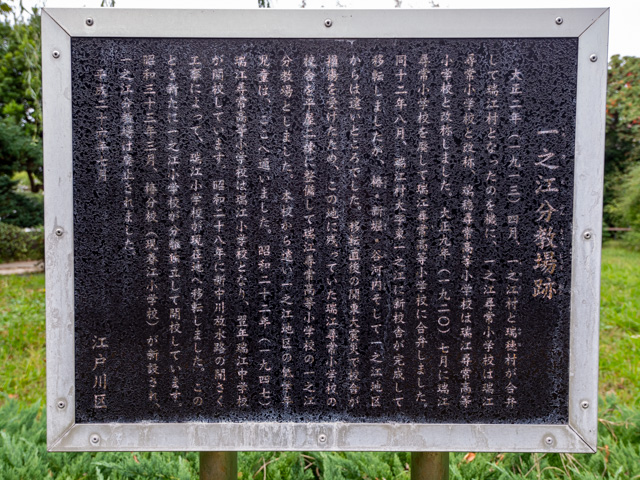 一之江分教場跡
大正二年（一九一三）四月、一之江村と瑞穂村が合併
して瑞江村となったのを機に、一之江尋常小学校は瑞江
尋常小学校と改称、瑞穂尋常高等小学校は瑞江尋常高等
小学校と改称しました。大正九年（一九二〇）七月に瑞江
尋常小学校を廃して瑞江尋常高等小学校に合併しました。
同十二年八月、瑞江村大字東一之江に新校舎が完成して
移転しましたが、椿・新堀・谷河内そして一之江地区
からは遠いところでした。移転直後の関東大震災で校舎が
損傷を受けたため、この地に残っていた瑞江尋常小学校の
校舎を平屋二棟に整備して瑞江尋常高等小学校の一之江
分教場としました。本校から遠い一之江地区の低学年
児童は、ここへ通いました。昭和二十二年（一九四七）
瑞江尋常高等小学校は瑞江小学校となり、翌年瑞江中学校
が開校しています。昭和二十八年に新中川放水路の開さく
工事によって、瑞江小学校が現在地へ移転しました。この
とき新たに一之江小学校が分離独立して開校しています。
昭和三十三年三月、椿分校（現春江小学校）が新設され、
一之江分教場は廃止されました。
平成二十六年七月
江戸川区